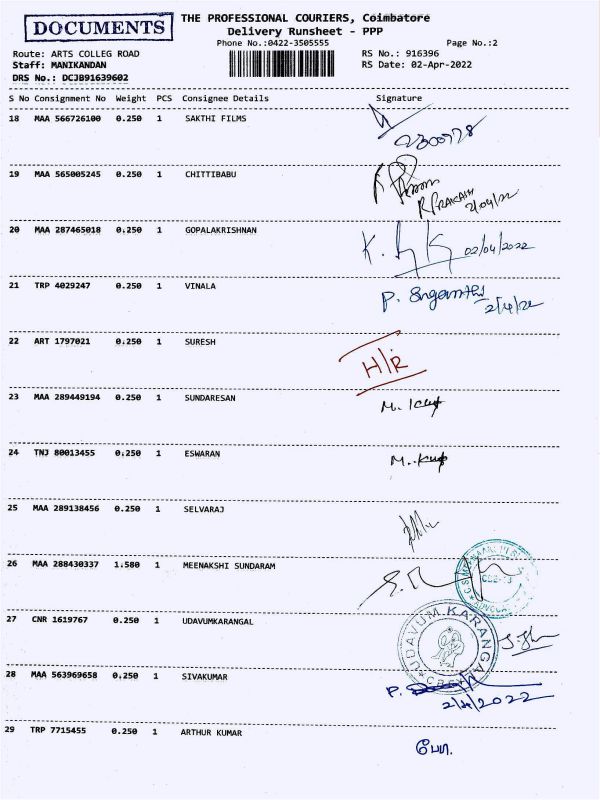 DOCUMENTS
THE PROFESSIONAL COURIERS, Coimbatore
Delivery Runsheet - PPP
Phone No.:0422-3505555 Page No.:2
Route: ARTS COLLEG ROAD RS No.: 916396
Staff: MANIKANDAN RS Date: 02-Apr-2022
DRS No.: DCJB91639602
S No Consignment No Weight PCS Consignee Details Signature
18 MAA 566726100 0.250 1 SAKTHI FILMS
19 MAA 565005245 0.250 1 CHITTIBABU
R PRAKASH
2/04/22
20 MAA 287465018 0.250 1 GOPALAKRISHNAN
02/04/2022
21 TRP 4029247 0.250 1 VINALA
P.
2/4/22
22 ART 1797021 0.250 1 SURESH
H/R
23 MAA 289449194 0.250 1 SUNDARESAN
M.
24 TNJ 80013455 0.250 1 ESWARAN
M.
25 MAA 289138456 0.250 1 SELVARAJ
26 MAA 288430337 1.580 1 MEENAKSHI SUNDARAM
27 CNR 1619767 0.250 1 UDAVUMKARANGAL
UDAVUM KARANGAL
28 MAA 563969658 0.250 1 SIVAKUMAR
P.
2/4/2022
29 TRP 7715455 0.250 1 ARTHUR KUMAR